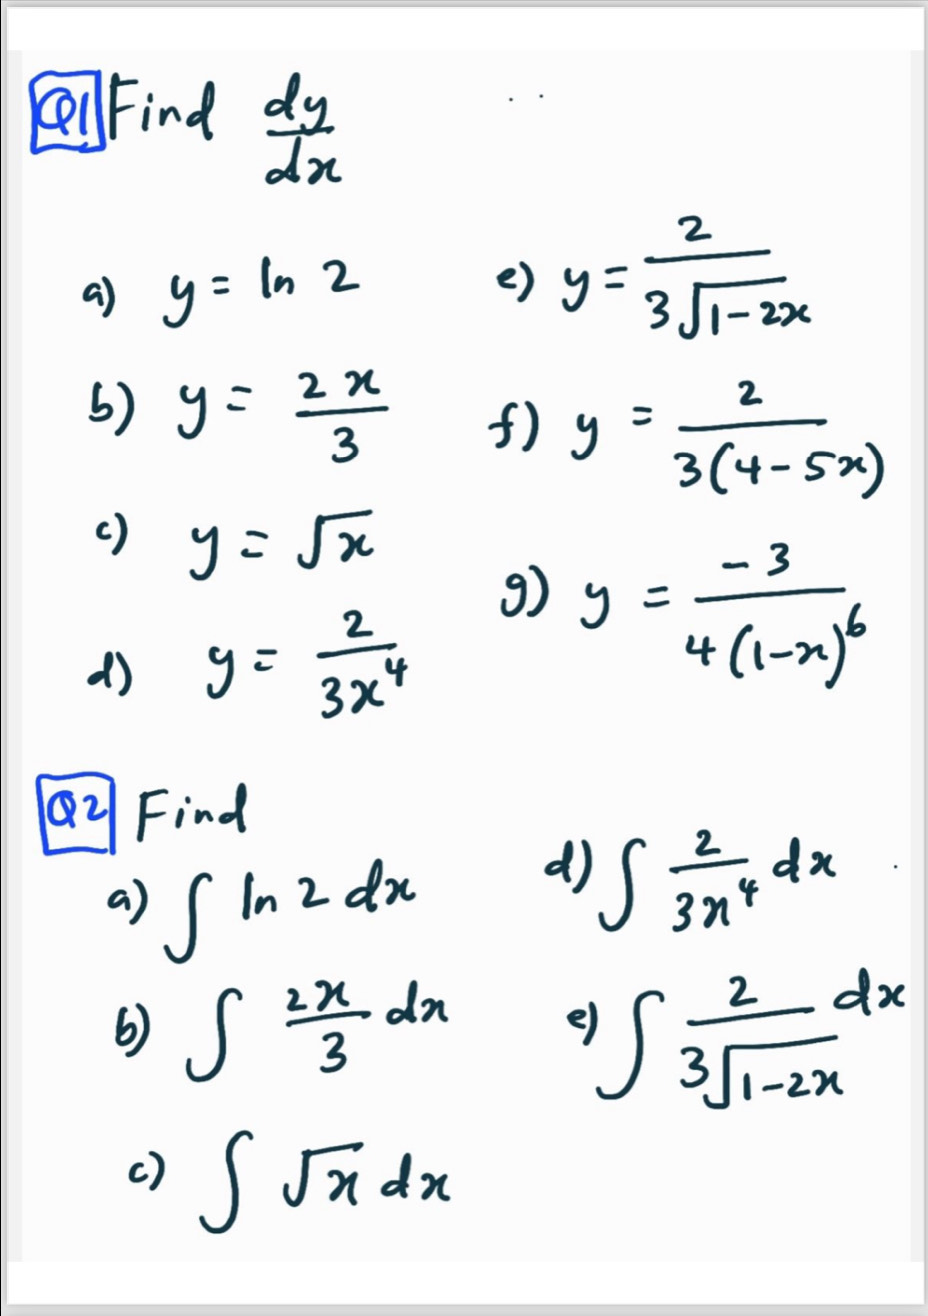 Q1 Find dy/dx
a) y = ln 2
b) y = 2x/3
c) y = √x
d) y = 2/(3x⁴)
e) y = 2/(3√(1-2x))
f) y = 2/(3(4-5x))
g) y = -3/(4(1-x)⁶)
Q2 Find
a) ∫ ln 2 dx
b) ∫ 2x/3 dx
c) ∫ √x dx
d) ∫ 2/(3x⁴) dx
e) ∫ 2/(3√(1-2x)) dx